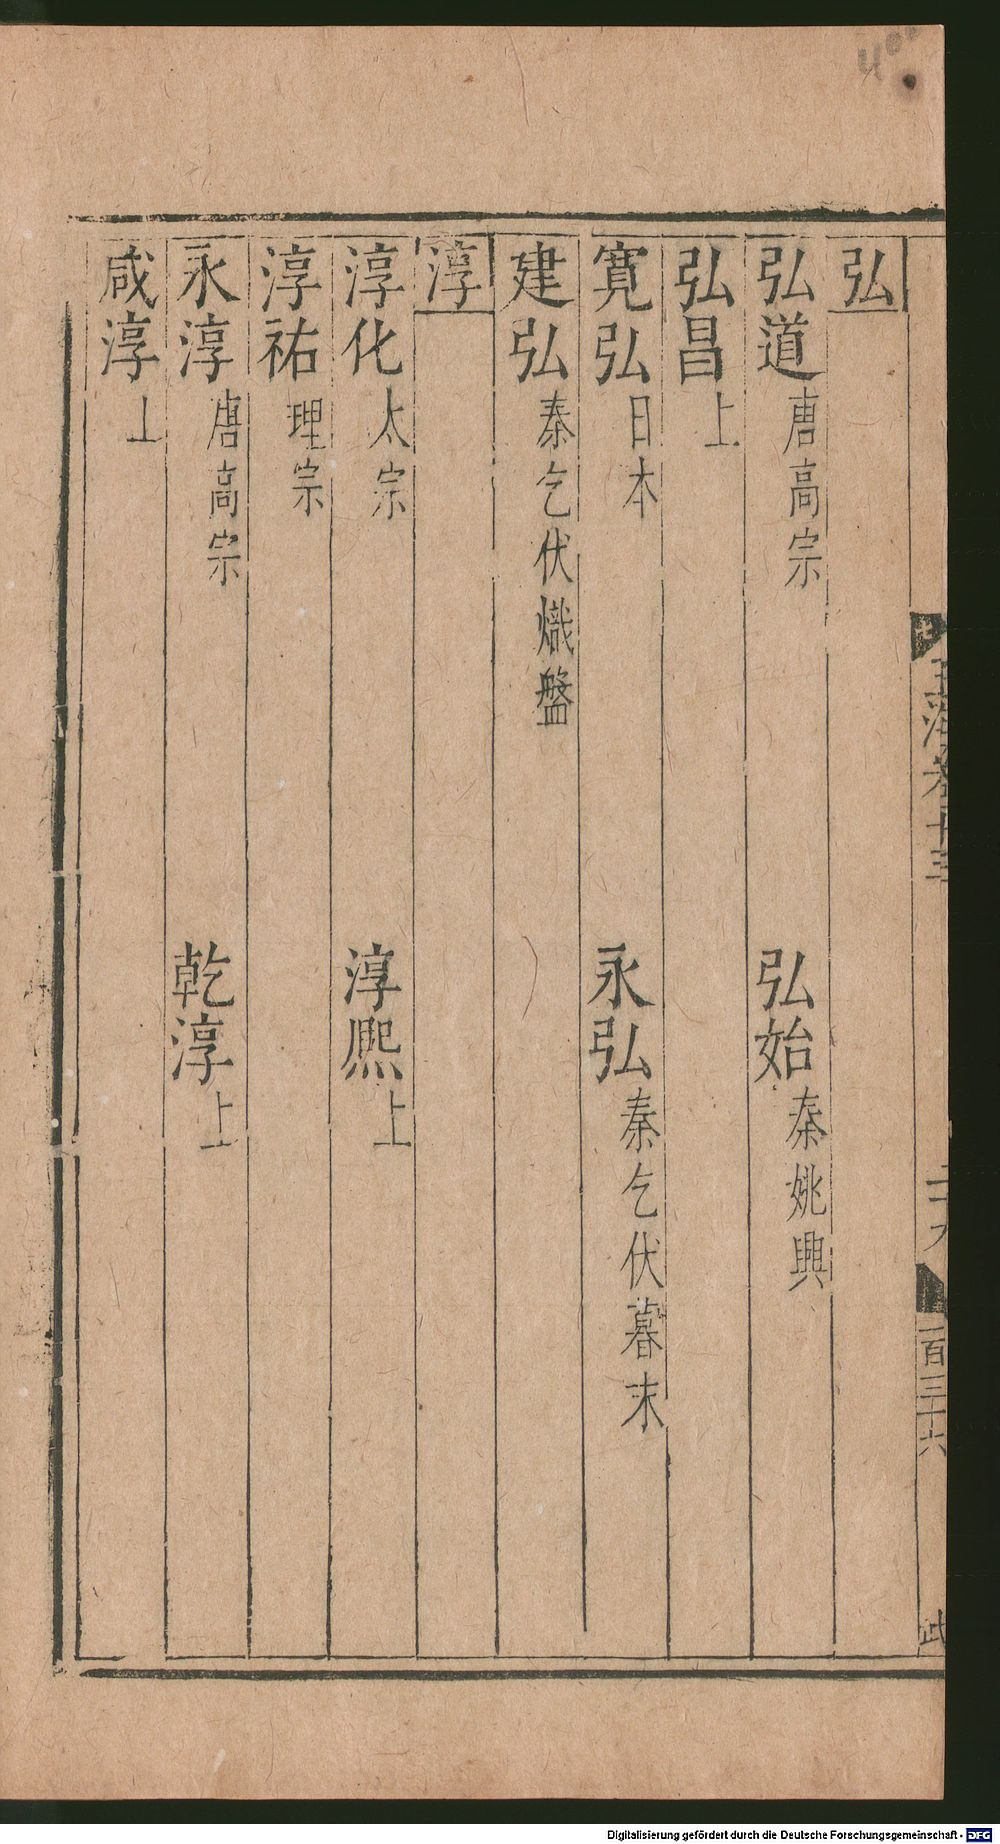 弘
弘道 唐高宗 弘始 秦姚興
弘昌 上
寛弘 日本 永弘 秦乞伏暮末
建弘 秦乞伏熾盤
淳
淳化 太宗 淳熈 上
淳祐 理宗
永淳 唐高宗 乾淳 上
咸淳 上
玉海卷十三
百三十六
武
Digitalisierung gefördert durch die Deutsche Forschungsgemeinschaft - DFG